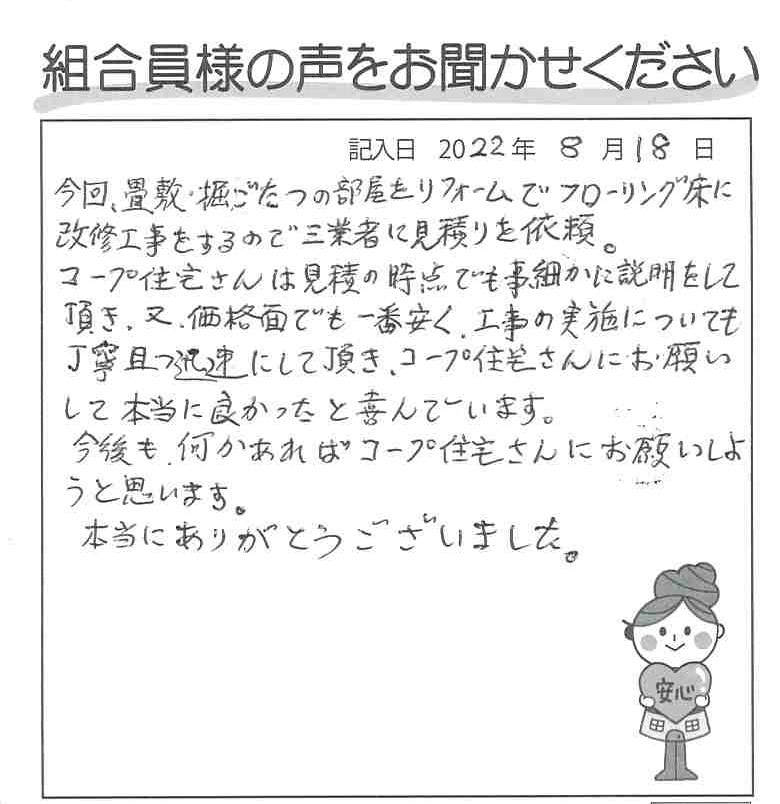 組合員様の声をお聞かせください
記入日 2022年 8月18日
今回、畳敷・掘ごたつの部屋をリフォームでフローリング床に
改修工事をするので三業者に見積りを依頼。
コープ住宅さんは見積の時点でも事細かに説明をして
頂き、又、価格面でも一番安く、工事の実施についても
丁寧且つ迅速にして頂き、コープ住宅さんにお願い
して本当に良かったと喜んでいます。
今後も、何かあればコープ住宅さんにお願いしよ
うと思います。
本当にありがとうございました。
安心